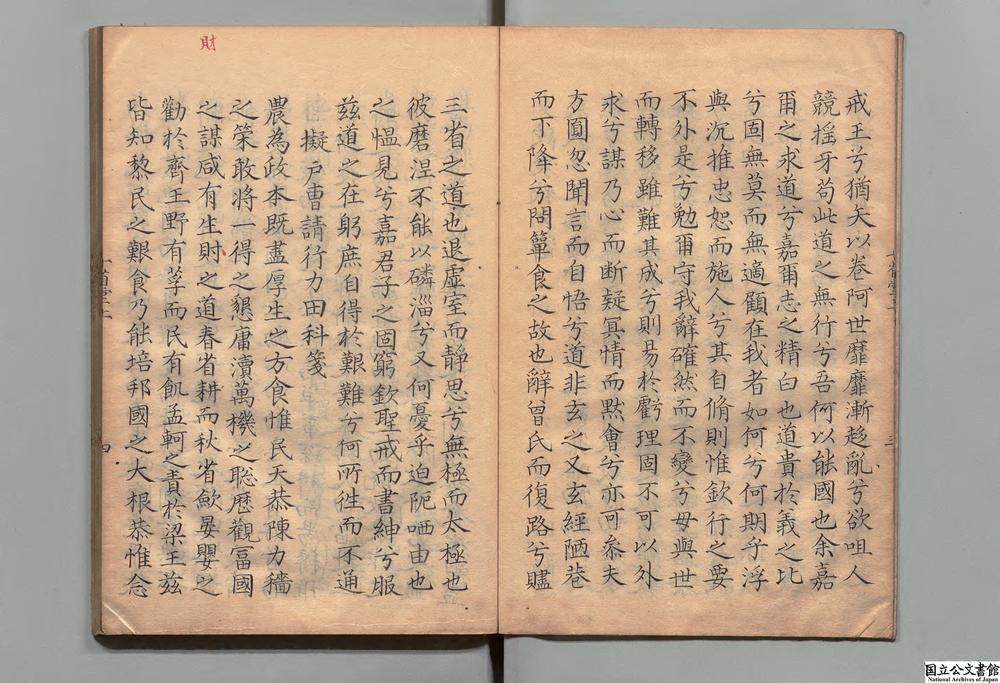 戒王兮猶矢以卷阿世靡靡漸趍亂兮欲咀人
競揺牙苟此道之無行兮吾何以能國也余嘉
爾之求道兮嘉爾志之精白也道貴於義之比
兮固無莫而無適顧在我者如何兮何期乎浮
與沉推忠恕而施人兮其自脩則惟欽行之要
不外是兮勉爾守我辭確然而不變兮毋與世
而轉移雖難其成兮則易於虧理固不可以外
求兮謀乃心而断疑冥情而黙會兮亦可叅夫
方圎忽聞言而自悟兮道非玄之又玄經陋巷
而下降兮問簞食之故也辭曾氏而復路兮贐
三省之道也退虚室而靜思兮無極而太極也
彼磨涅不能以磷淄兮又何憂乎迫阨哂由也
之愠見兮嘉君子之固窮欽聖戒而書紳兮服
兹道之在躬庶自得於艱難兮何所徃而不通
擬戸曹請行力田科箋
農為政本既盡厚生之方食惟民天恭陳力穡
之策敢將一得之懇庸瀆萬機之聦歴觀冨國
之謀咸有生財之道春省耕而秋省歛晏嬰之
勸於齊王野有莩而民有飢孟軻之責於梁王兹
皆知黎民之艱食乃能培邦國之大根恭惟念
財
三
四
国立公文書館
National Archives of Japan